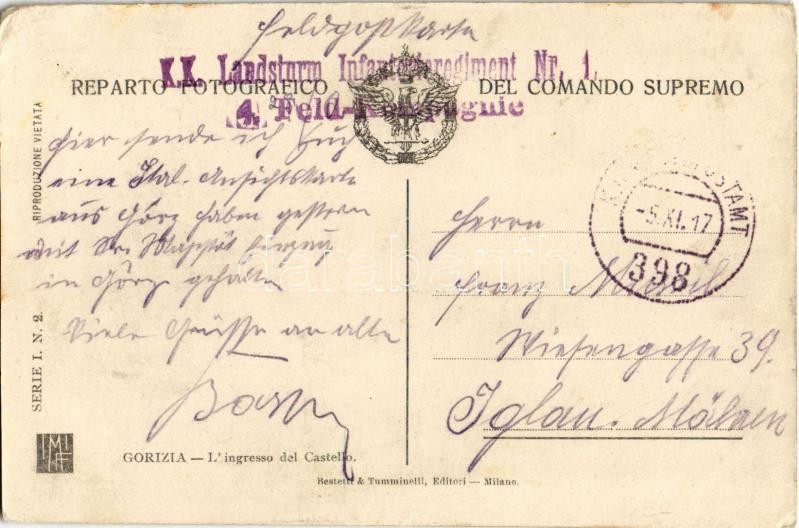 Feldpostkarte
K.K. Landsturm Infanterieregiment Nr. 1.
REPARTO FOTOGRAFICO DEL COMANDO SUPREMO
4. Feld-Kompagnie
RIPRODUZIONE VIETATA
SERIE I. N. 2.
Hier sende ich Euch
eine Ital. Ansichtskarte
aus Görz haben gestern
mit Sr. Majestät Einzug
in Görz gehalten
Viele Grüsse an alle
K.u.K. FELDPOSTAMT
-5.XI.17
398
Herrn
Franz
Wiesengasse 39.
Iglau. Mähren
GORIZIA — L'ingresso del Castello.
Bestetti & Tumminelli, Editori — Milano.
darabanth